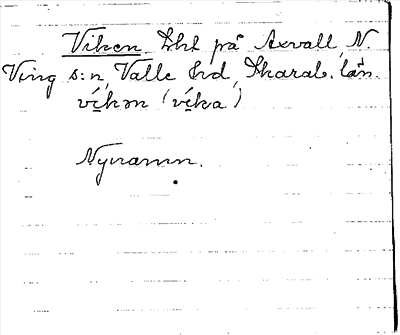 Viken Lht på Axvall, N.
Ving s:n, Valle hd, Skarab. län.
víkən (víka)
Nynamn.